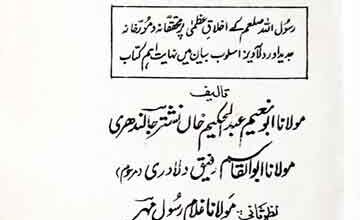 رسول اللہ صلعم کے اخلاقِ عظمیٰ پر محققانہ و مورّخانہ
جدید اور دلآویز اسلوب بیان میں نہایت اہم کتاب
تالیف
مولانا ابو نعیم عبدالحکیم خاں نشتر جالندھری
مولانا ابوالقاسم رفیق دلاوری (مرحوم)
نظرثانی: مولانا غلام رسول مہر